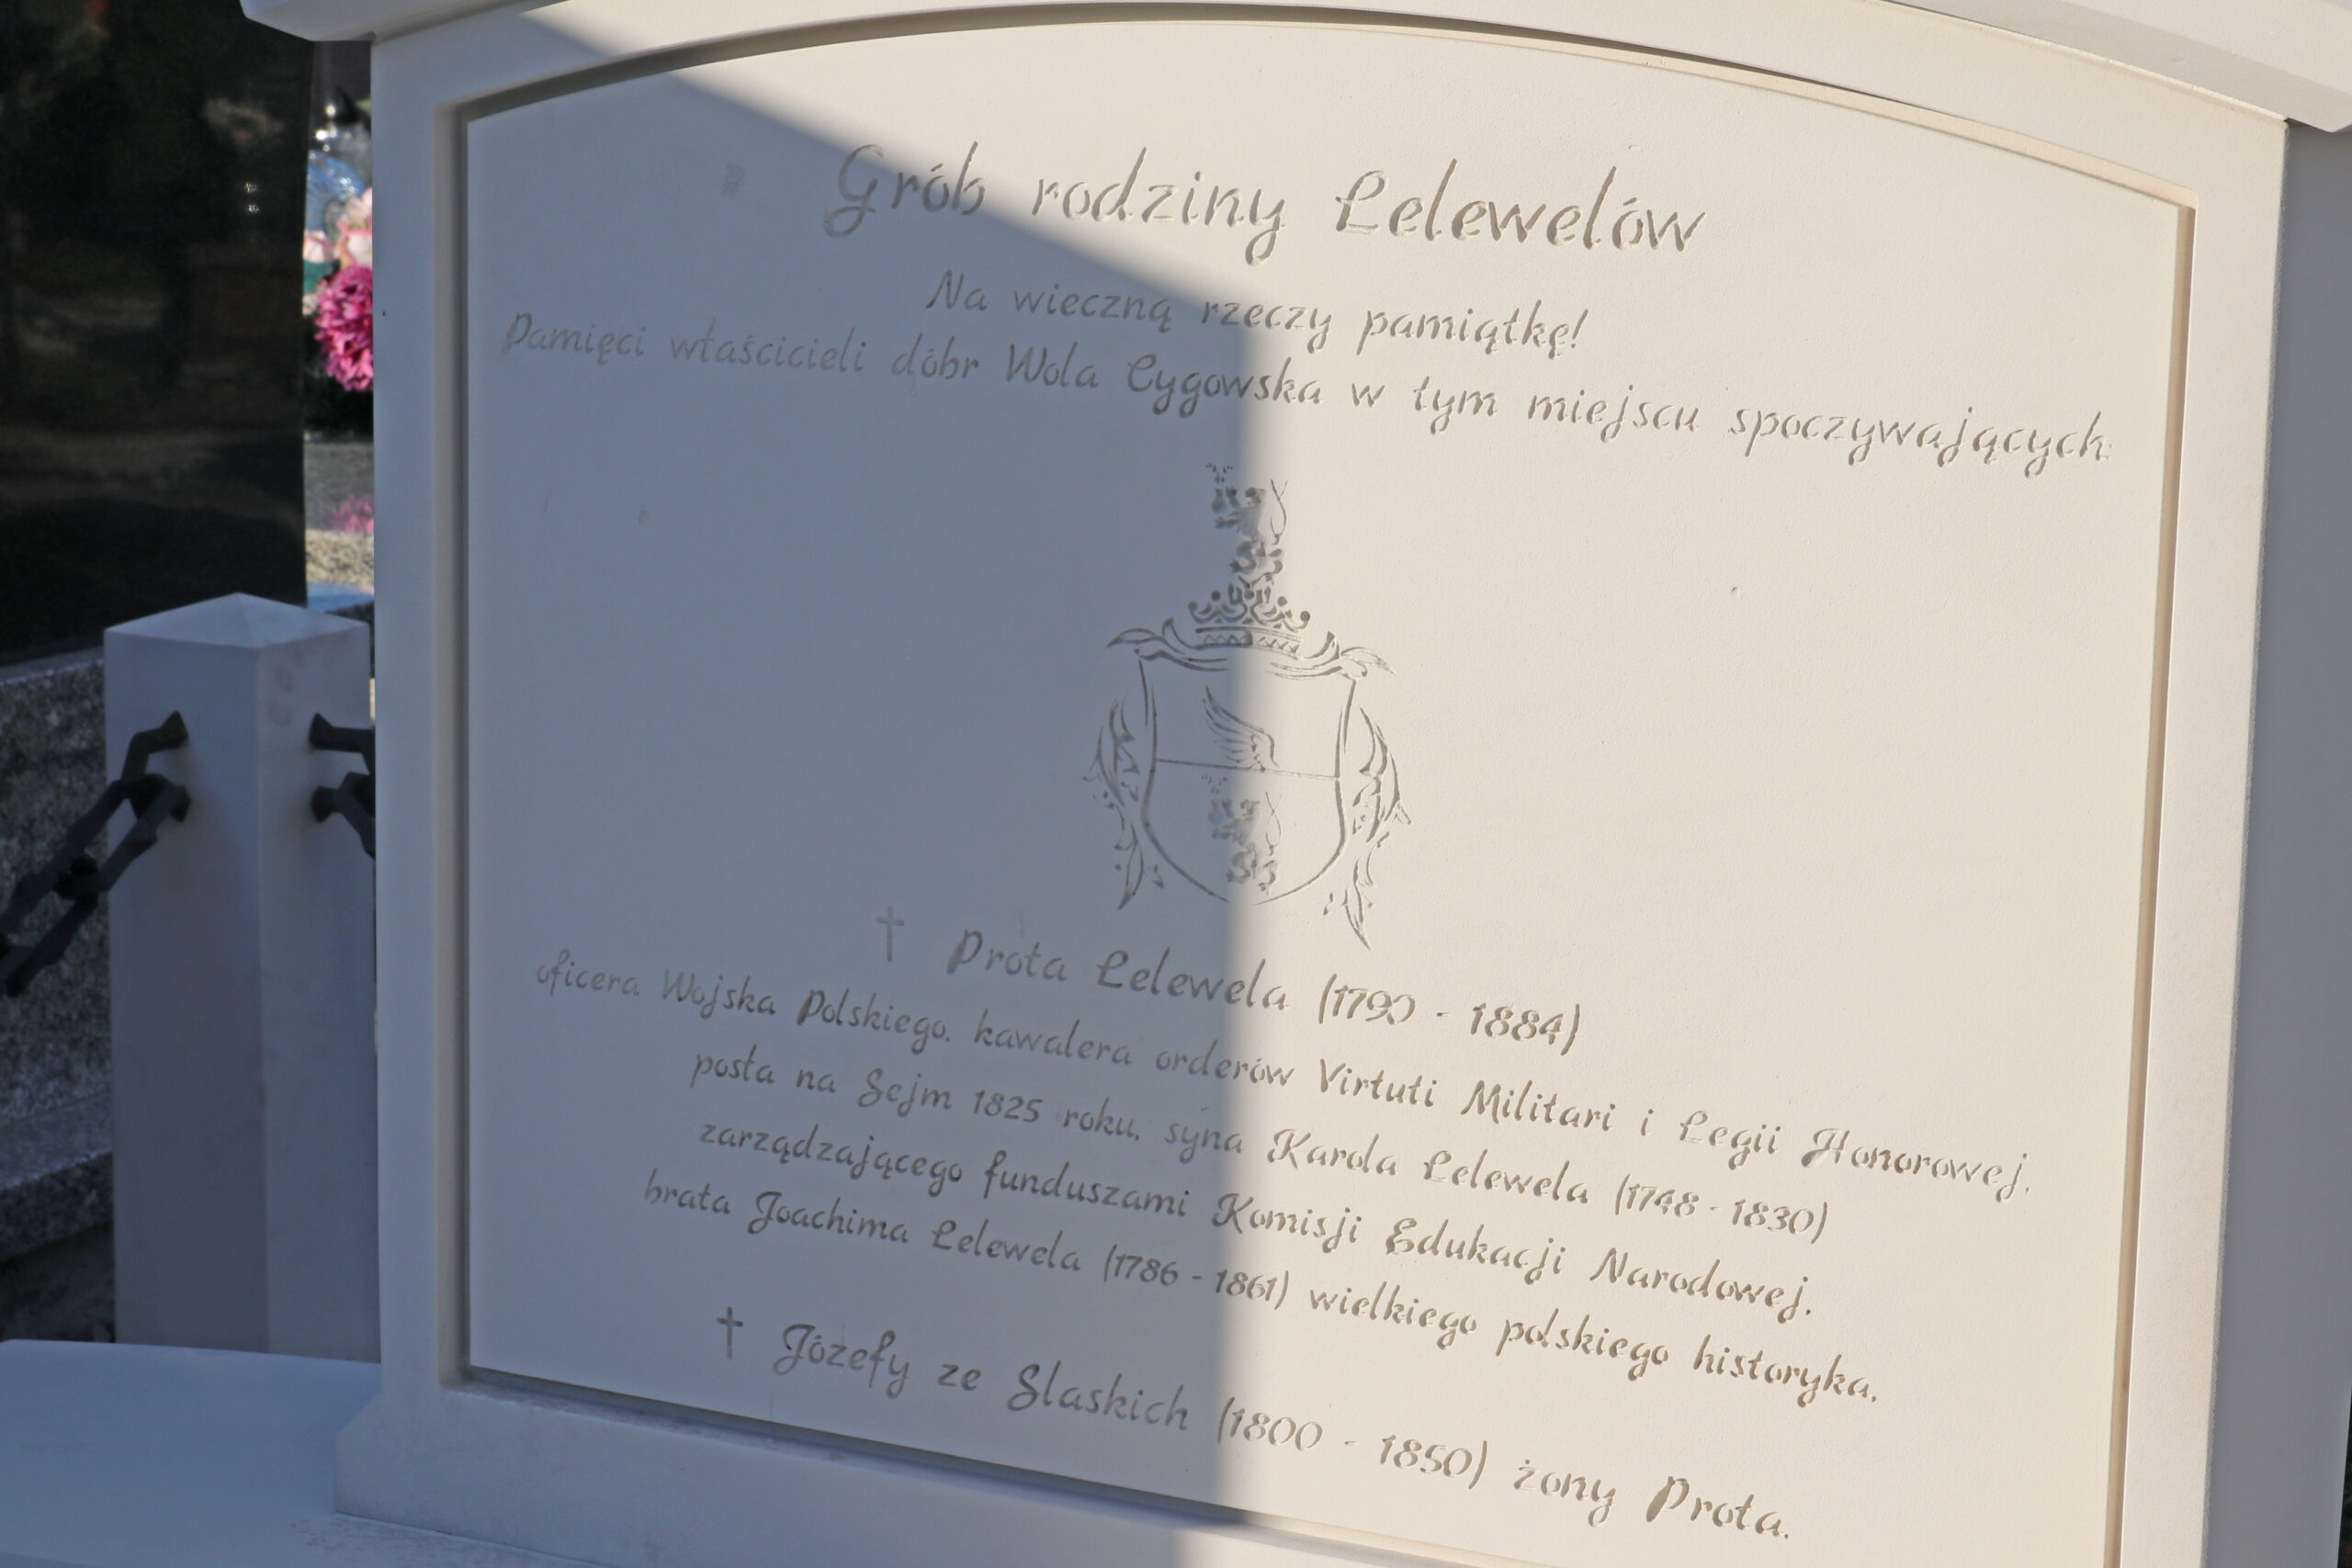 Grób rodziny Lelewelów
Na wieczną rzeczy pamiątkę!
Pamięci właścicieli dóbr Wola Cygowska w tym miejscu spoczywających:
† Prota Lelewela (1790 - 1884)
oficera Wojska Polskiego, kawalera orderów Virtuti Militari i Legii Honorowej,
posła na Sejm 1825 roku, syna Karola Lelewela (1748 - 1830)
zarządzającego funduszami Komisji Edukacji Narodowej,
brata Joachima Lelewela (1786 - 1861) wielkiego polskiego historyka,
† Józefy ze Slaskich (1800 - 1850) żony Prota.